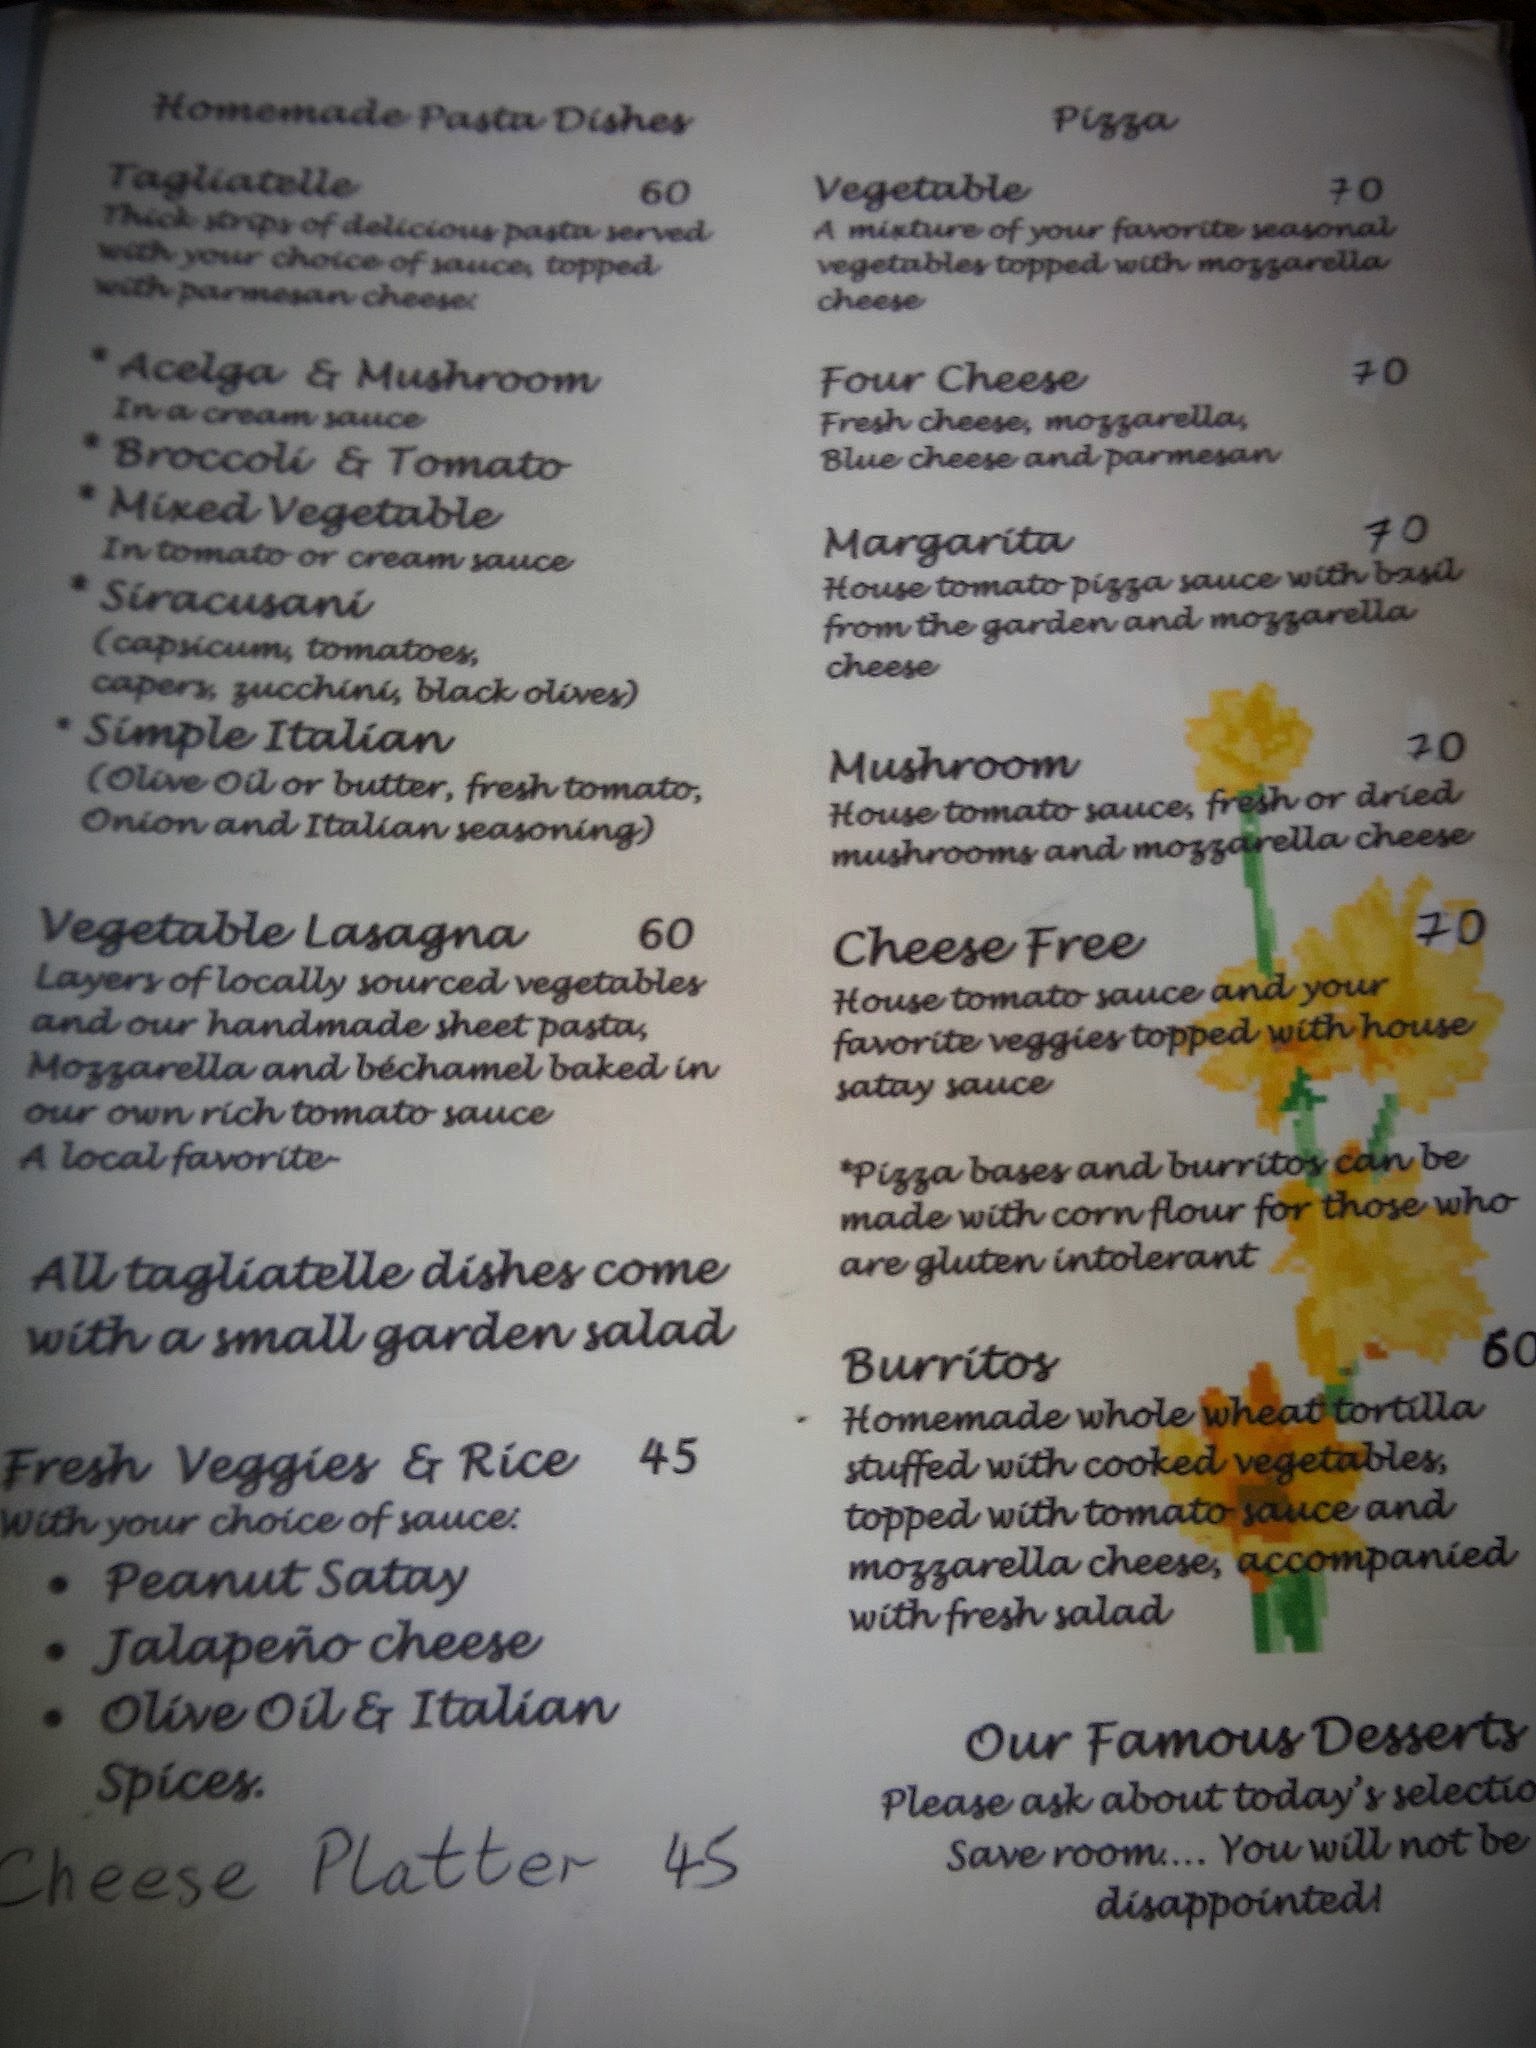 Homemade Pasta Dishes
Tagliatelle 60
Thick strips of delicious pasta served
with your choice of sauce, topped
with parmesan cheese:
* Acelga & Mushroom
In a cream sauce
* Broccoli & Tomato
* Mixed Vegetable
In tomato or cream sauce
* Siracusani
(capsicum, tomatoes,
capers, zucchini, black olives)
* Simple Italian
(Olive Oil or butter, fresh tomato,
Onion and Italian seasoning)
Vegetable Lasagna 60
Layers of locally sourced vegetables
and our handmade sheet pasta,
Mozzarella and béchamel baked in
our own rich tomato sauce
A local favorite~
All tagliatelle dishes come
with a small garden salad
Fresh Veggies & Rice 45
With your choice of sauce:
• Peanut Satay
• Jalapeño cheese
• Olive Oil & Italian
Spices.
Cheese Platter 45
Pizza
Vegetable 70
A mixture of your favorite seasonal
vegetables topped with mozzarella
cheese
Four Cheese 70
Fresh cheese, mozzarella,
Blue cheese and parmesan
Margarita 70
House tomato pizza sauce with basil
from the garden and mozzarella
cheese
Mushroom 70
House tomato sauce, fresh or dried
mushrooms and mozzarella cheese
Cheese Free 70
House tomato sauce and your
favorite veggies topped with house
satay sauce
*Pizza bases and burritos can be
made with corn flour for those who
are gluten intolerant
Burritos 60
Homemade whole wheat tortilla
stuffed with cooked vegetables,
topped with tomato sauce and
mozzarella cheese, accompanied
with fresh salad
Our Famous Desserts
Please ask about today's selectio
Save room.... You will not be
disappointed!